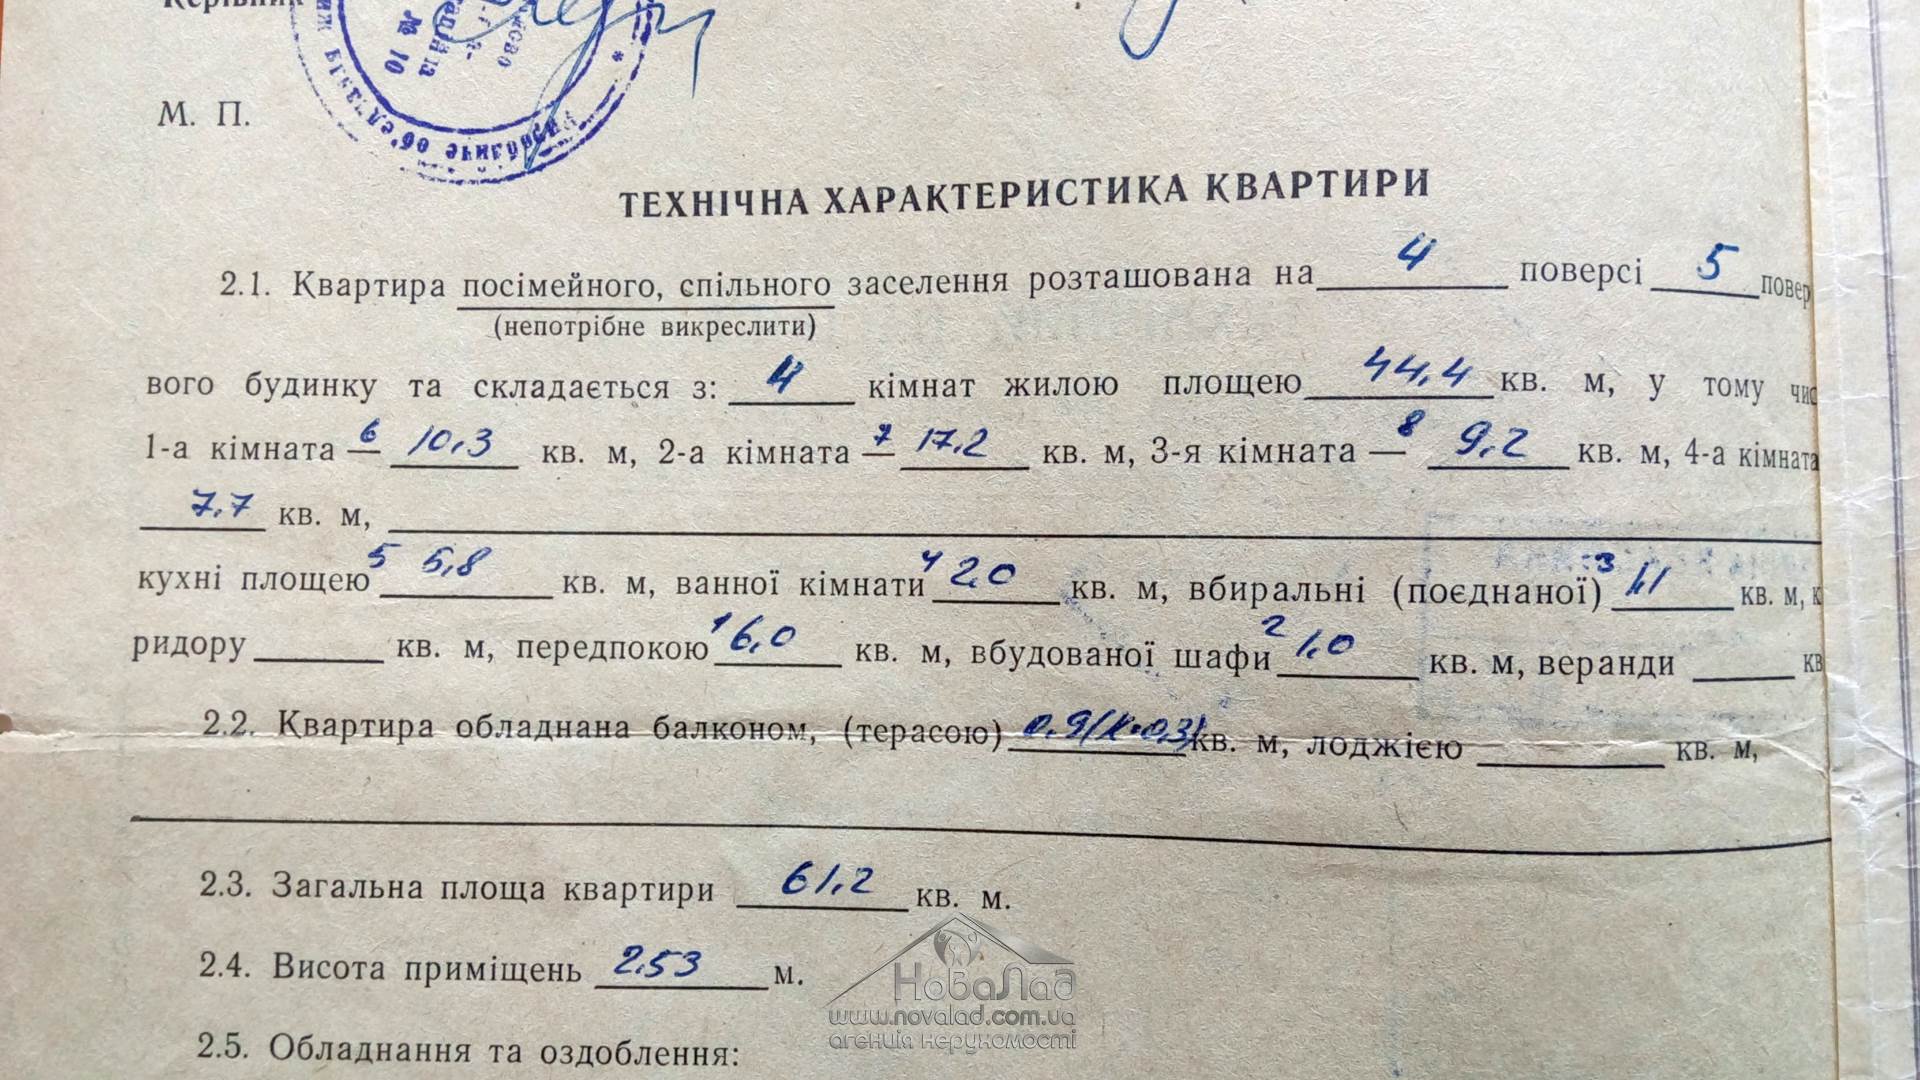 Керівник
№ 10
М. П.
ТЕХНІЧНА ХАРАКТЕРИСТИКА КВАРТИРИ
2.1. Квартира посімейного, спільного заселення розташована на 4 поверсі 5 повер
(непотрібне викреслити)
вого будинку та складається з: 4 кімнат жилою площею 44,4 кв. м, у тому чис
1-а кімната — 6 10,3 кв. м, 2-а кімната — 7 17,2 кв. м, 3-я кімната — 8 9,2 кв. м, 4-а кімната
7,7 кв. м,
кухні площею 5 5,8 кв. м, ванної кімнати 4 2,0 кв. м, вбиральні (поєднаної) 3 1,1 кв. м, к
ридору кв. м, передпокою 1 6,0 кв. м, вбудованої шафи 2 1,0 кв. м, веранди кв
2.2. Квартира обладнана балконом, (терасою) 0,9 (к-0,3) кв. м, лоджією кв. м,
2.3. Загальна площа квартири 61,2 кв. м.
2.4. Висота приміщень 2,53 м.
НоваЛад
www.novalad.com.ua
агенція нерухомості
2.5. Обладнання та оздоблення: